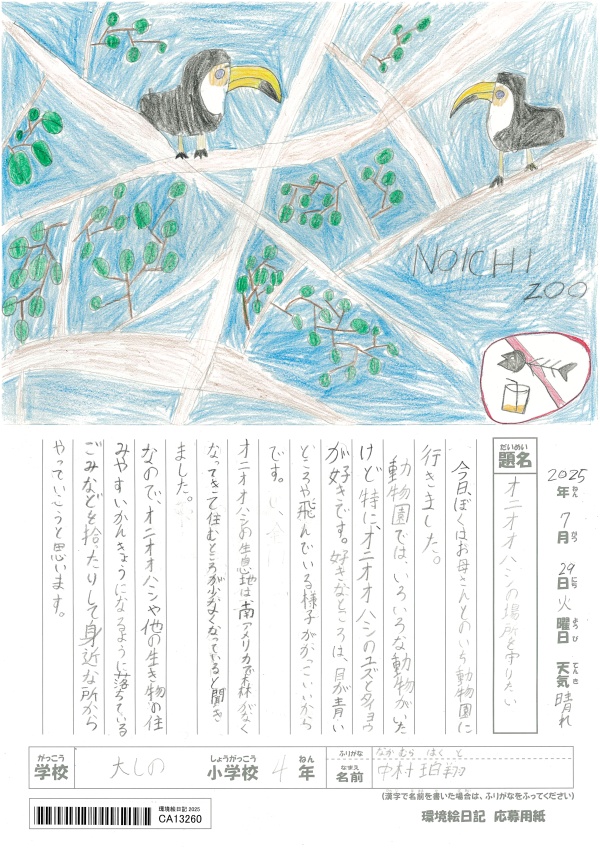 NOICHI
ZOO
2025年 7月 29日 火曜日 天気 晴れ
ねん がつ にち ようび てんき
だいめい
題名 オニオオハシの場所を守りたい
今日、ぼくはお母さんとのいち動物園に
行きました。
動物園では、いろいろな動物がいた
けど特に、オニオオハシのユズとタイヨウ
が好きです。好きなところは、目が青い
ところや飛んでいる様子がかっこいいから
です。
オニオオハシの生息地は南アメリカで森林がなく
なってきて住むところが少なくなっていると聞き
ました。
なので、オニオオハシや他の生き物の住
みやすいかんきょうになるように落ちている
ごみなどを拾ったりして身近な所から
やっていこうと思います。
がっこう しょうがっこう ねん
学校 大しの 小学校 4年
ふりがな なかむら はくと
なまえ
名前 中村 珀翔
(漢字で名前を書いた場合は、ふりがなをふってください)
環境絵日記 2025
CA13260
環境絵日記 応募用紙